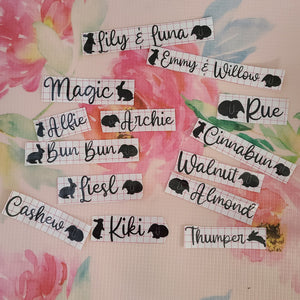 Lily & Luna
Emmy & Willow
Magic
Rue
Alfie
Archie
Cinnabun
Bun Bun
Walnut
Liesl
Almond
Cashew
Kiki
Thumper